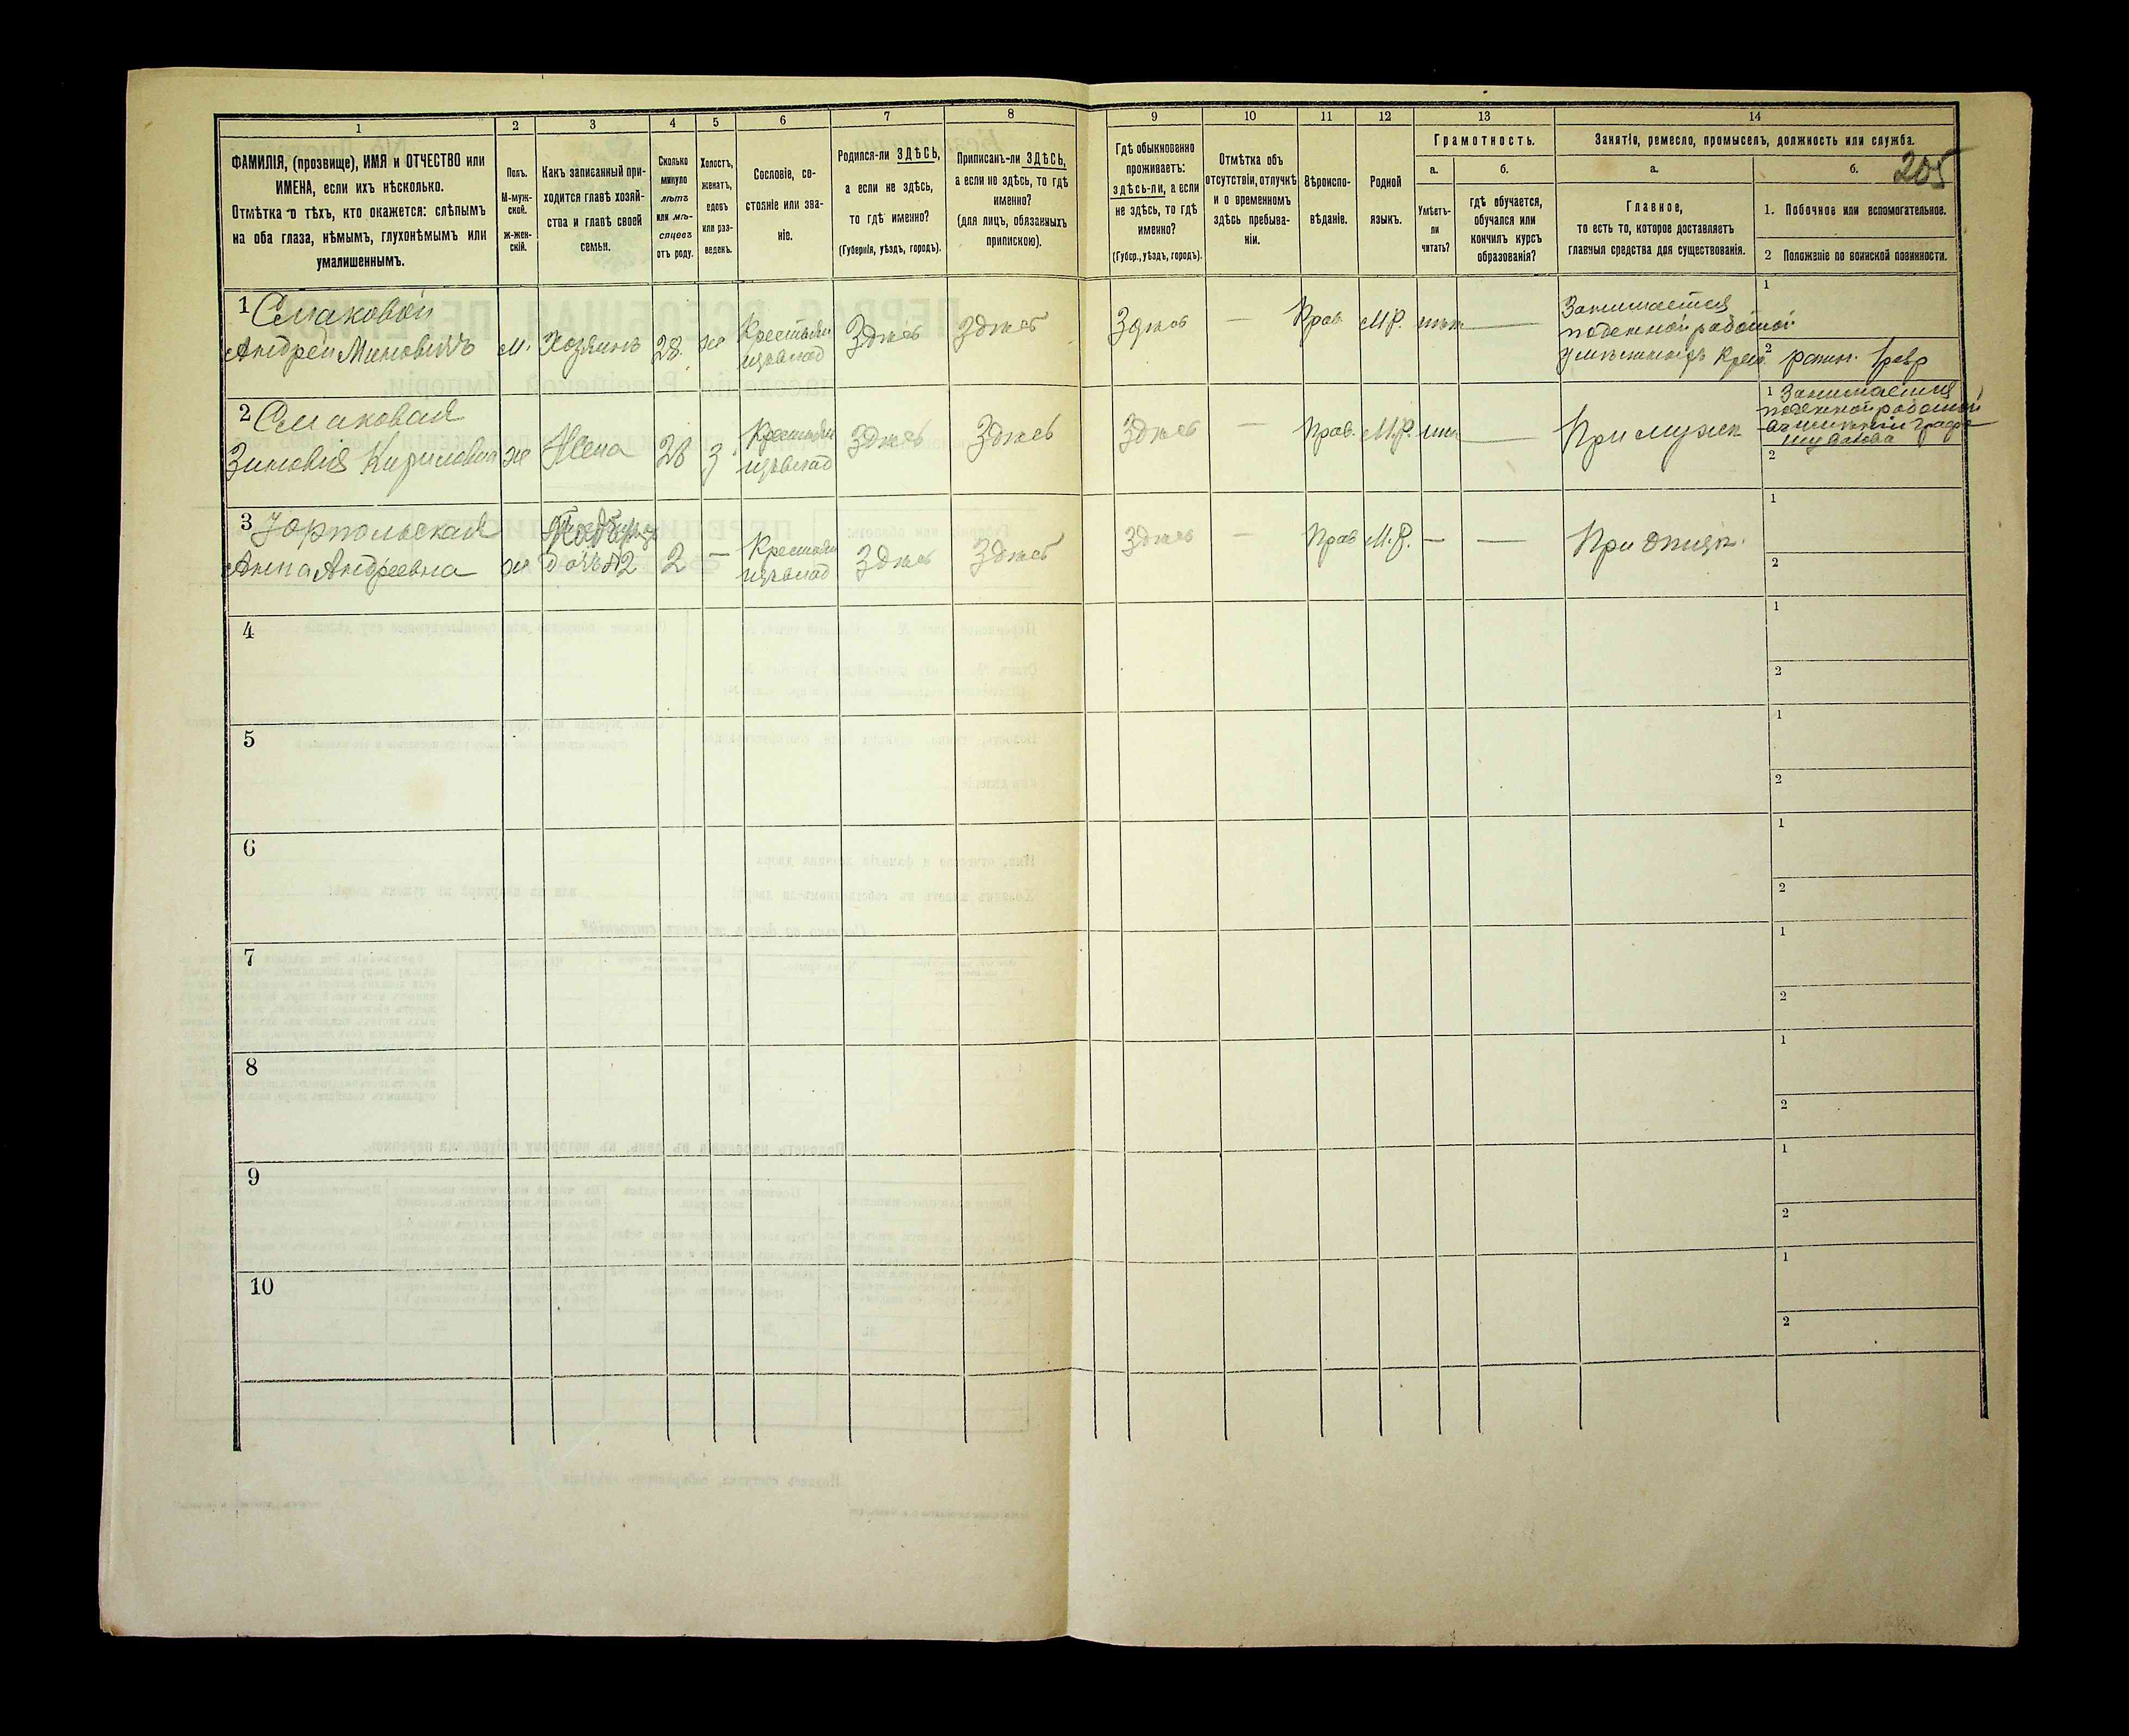 1
2
3
4
5
6
7
8
9
10
11
12
13
14
ФАМИЛІЯ, (прозвище), ИМЯ и ОТЧЕСТВО или
ИМЕНА, если ихъ нѣсколько.
Отмѣтка о тѣхъ, кто окажется: слѣпымъ
на оба глаза, нѣмымъ, глухонѣмымъ или
умалишеннымъ.
Полъ.
М-муж-
ской.
Ж-жен-
скій.
Какъ записанный при-
ходится главѣ хозяй-
ства и главѣ своей
семьи.
Сколько
минуло
лѣтъ
или мѣ-
сяцевъ
отъ роду.
Холостъ,
женатъ,
вдовъ
или раз-
веденъ.
Сословіе, со-
стояніе или зва-
ніе.
Родился-ли ЗДѢСЬ,
а если не здѣсь,
то гдѣ именно?
(Губернія, уѣздъ, городъ).
Приписанъ-ли ЗДѢСЬ,
а если не здѣсь, то гдѣ
именно?
(для лицъ, обязанныхъ
припискою).
Гдѣ обыкновенно
проживаетъ:
здѣсь-ли, а если
не здѣсь, то гдѣ
именно?
(Губер., уѣздъ, городъ).
Отмѣтка объ
отсутствіи, отлучкѣ
и о временномъ
здѣсь пребыва-
ніи.
Вѣроиспо-
вѣданіе.
Родной
языкъ.
Грамотность.
а.
б.
Умѣетъ-
ли
читать?
гдѣ обучается,
обучался или
кончилъ курсъ
образованія?
Занятіе, ремесло, промыселъ, должность или служба.
а.
б.
205
Главное,
то есть то, которое доставляетъ
главныя средства для существованія.
1. Побочное или вспомогательное.
2 Положеніе по воинской повинности.
1 Смаковой
Андрей Миновичъ
м.
Хозяинъ
28.
же
Крестьян
изъ влад
Здѣсь
Здѣсь
Здѣсь
—
Прав.
М.Р.
нѣт
—
Занимается
поденной работой
1
2
2 Смаковая
Зиновія Кириловна
же
Жена
28
з
Крестьян
изъ влад
Здѣсь
Здѣсь
Здѣсь
—
Прав.
М.Р.
—
При мужѣ
1 Занимается
поденной работой
2
3
Анна Андреевна
же
дочь
2
—
Крестьян
изъ влад
Здѣсь
Здѣсь
Здѣсь
—
Прав
М.Р.
—
—
При отцѣ.
1
2
4
1
2
5
1
2
6
1
2
7
1
2
8
1
2
9
1
2
10
1
2